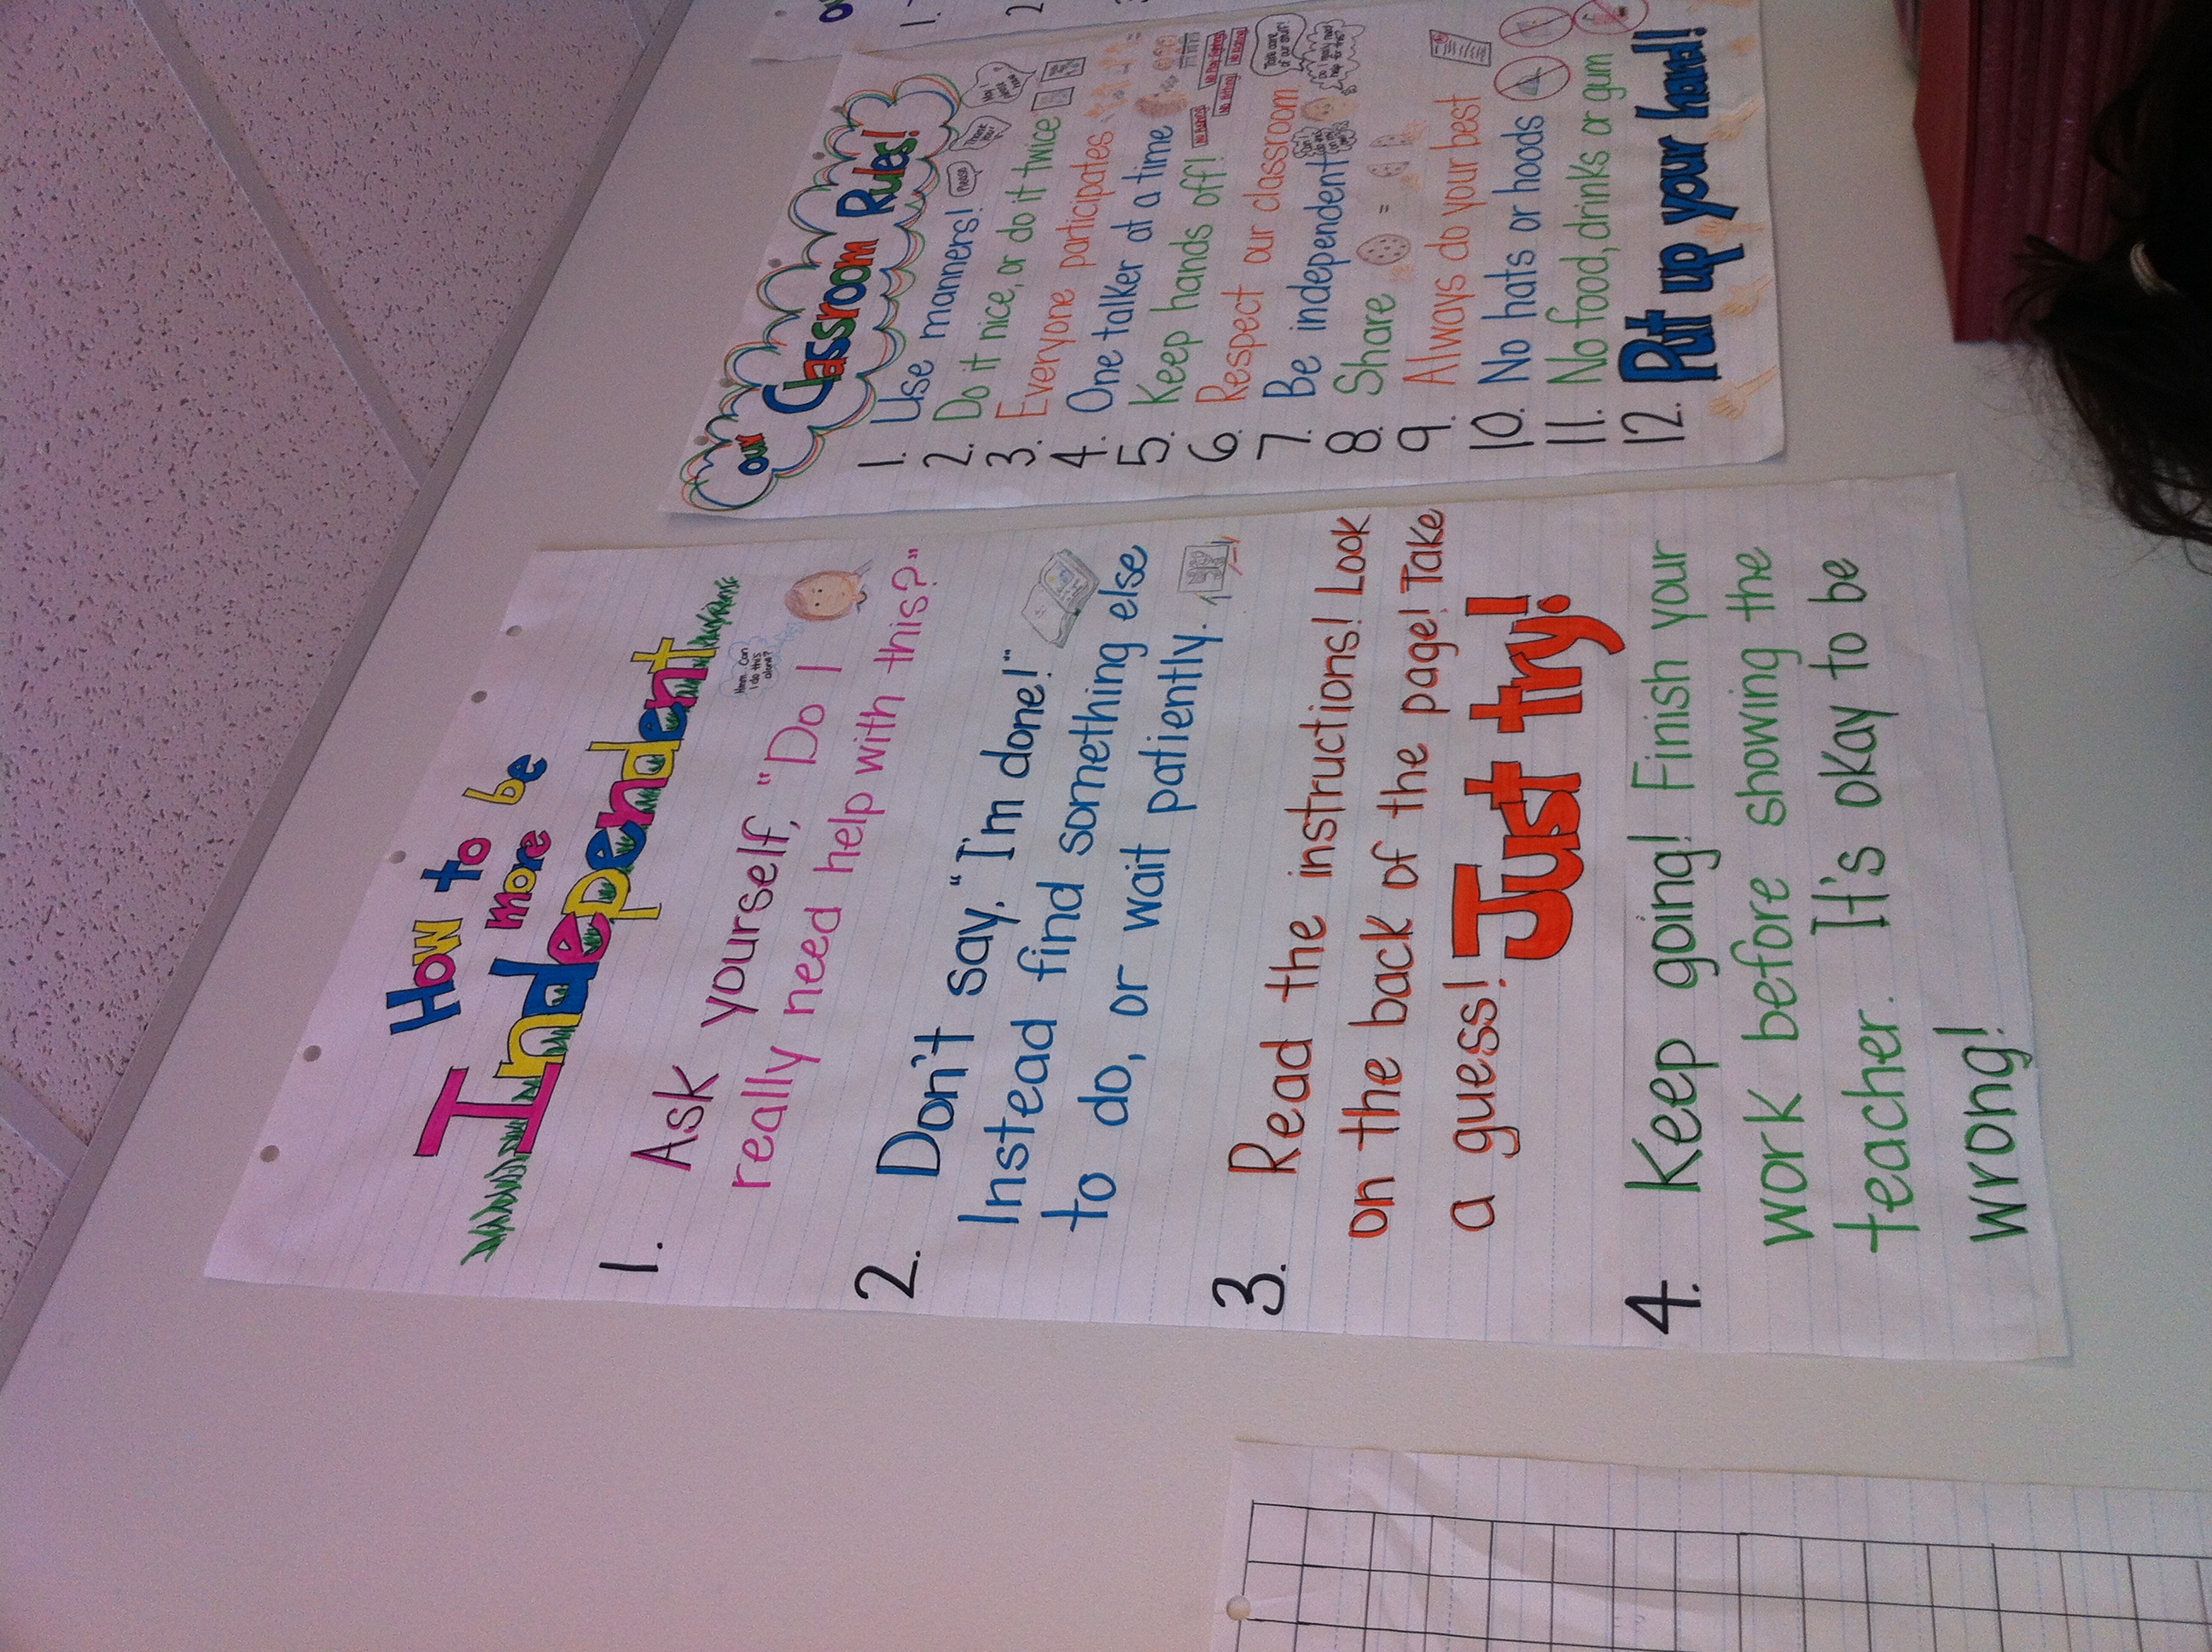 How to be
more
Independent
Hmm. Can
I do this
alone?
1. Ask yourself, "Do I
really need help with this?"
2. Don't say, "I'm done!"
Instead find something else
to do, or wait patiently.
3. Read the instructions! Look
on the back of the page! Take
a guess! Just try!
4. Keep going! Finish your
work before showing the
teacher. It's okay to be
wrong!
Our Classroom Rules!
1. Use manners! Please Thank you!
2. Do it nice, or do it twice
3. Everyone participates
4. One talker at a time
5. Keep hands off!
6. Respect our classroom
7. Be independent
8. Share =
9. Always do your best
10. No hats or hoods
11. No food, drinks or gum
12. Put up your hand!
1.
2